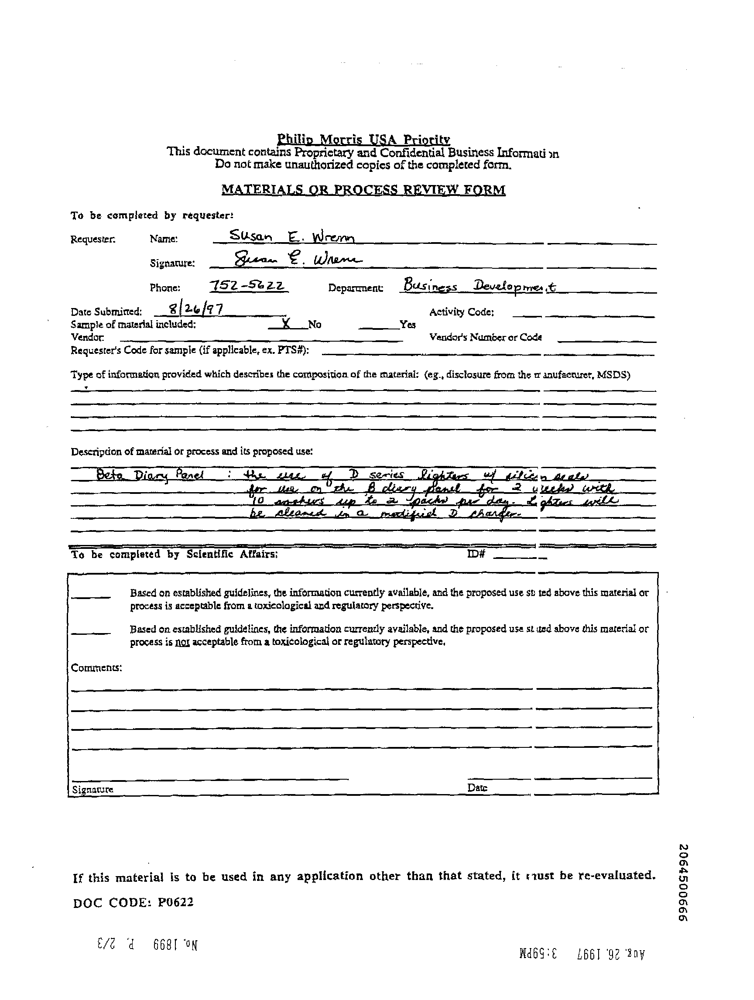 Philip Morris USA Priority
This document contains Proprietary and Confidential Business Information
Do not make unauthorized copies of the completed form.
MATERIALS OR PROCESS REVIEW FORM
To be completed by requester:
Requester: Name: Susan E. Wrenn
Signature: Susan E. Wrenn
Phone: 752-5622 Department: Business Development
Date Submitted: 8/26/97 Activity Code:
Sample of material included: X No Yes
Vendor: Vendor's Number or Code
Requester's Code for sample (if applicable, ex. PTS#):
Type of information provided which describes the composition of the material: (eg., disclosure from the manufacturer, MSDS)
Description of material or process and its proposed use:
Beta Diary Panel : the use of D series lighters w/ silicon seals
for use on the B diary panel for 2 weeks with
10 smokers up to 2 packs per day. Lighters will
be cleaned in a modified D charger.
To be completed by Scientific Affairs: ID#
Based on established guidelines, the information currently available, and the proposed use stated above this material or
process is acceptable from a toxicological and regulatory perspective.
Based on established guidelines, the information currently available, and the proposed use stated above this material or
process is not acceptable from a toxicological or regulatory perspective.
Comments:
Signature Date
If this material is to be used in any application other than that stated, it must be re-evaluated.
DOC CODE: P0622
2064500666
No. 1899 P. 2/3
Aug. 26. 1997 3:59PM